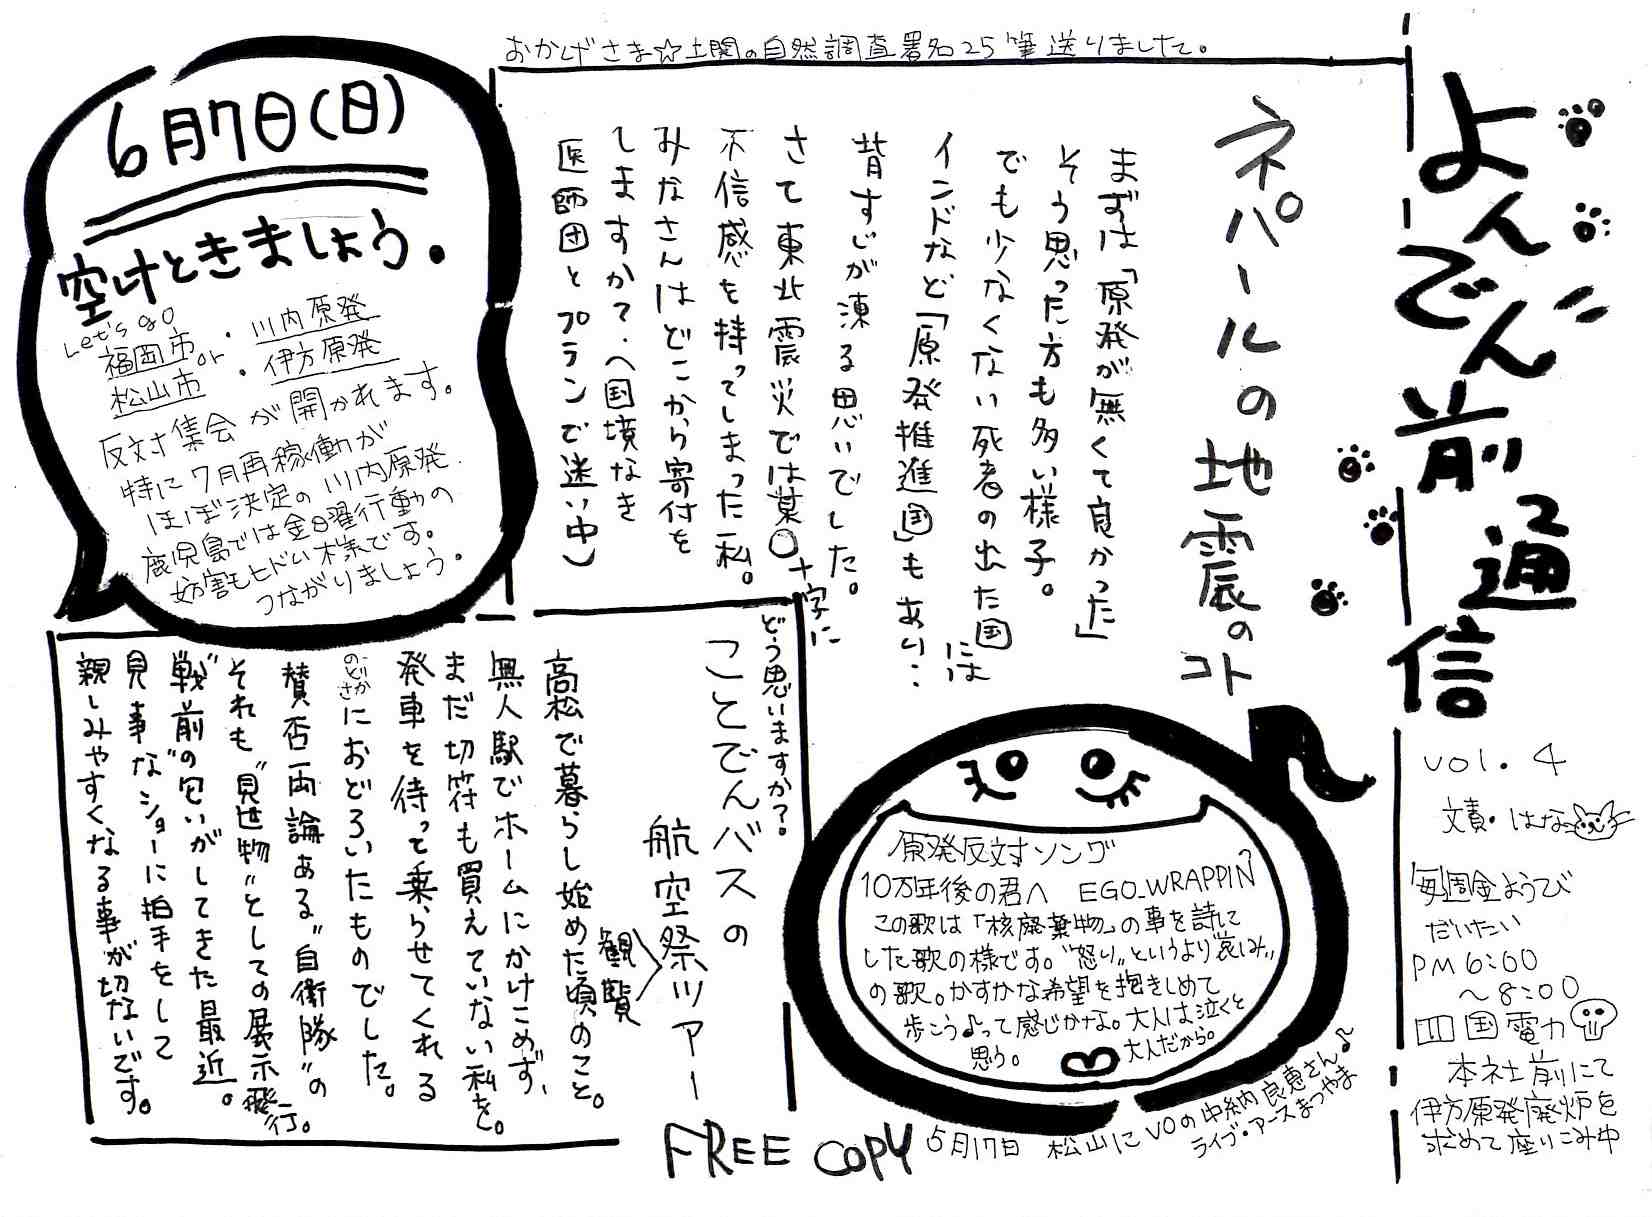 よんでん前通信
vol.4
文責・はな
毎週金ようび
だいたい
PM6:00
～8:00
四国電力
本社前にて
伊方原発廃炉を
求めて座りこみ中
おかげさま☆上関の自然調査署名25筆送りました。
ネパールの地震のコト
まずは「原発が無くて良かった」
そう思った方も多い様子。
でも少なくない死者の出た国には
インドなど「原発推進国」もあり‥
背すじが凍る思いでした。
さて東北震災では某〇十字に
不信感を持ってしまった私。
みなさんはどこから寄付を
しますかて？（国境なき
医師団とプランで迷い中）
6月7日（日）
空けときましょう。
Let's go
福岡市・川内原発
or
松山市・伊方原発
反対集会が開かれます。
特に7月再稼働が
ほぼ決定の川内原発。
鹿児島では金曜行動の
妨害もヒドい様です。
つながりましょう。
どう思いますか？
ことでんバスの
航空祭ツアー
観覧
高松で暮らし始めた頃のこと。
無人駅でホームにかけこめず、
まだ切符も買えていない私を。
発車を待って乗らせてくれる
のどかさにおどろいたものでした。
賛否両論ある"自衛隊"の
それも"見世物"としての展示飛行。
"戦前"の匂いがしてきた最近。
見事な"ショーに拍手をして
親しみやすくなる事が切ないです。
原発反対ソング
10万年後の君へ EGO-WRAPPIN'
この歌は「核廃棄物」の事を詩にして
した歌の様です。"怒り"というより哀しみ"
の歌。かすかな希望を抱きしめて
歩こう♪って感じかな。大人は泣くと
思う。 大人だから。
FREE COPY
5月17日 松山にVOの中納良恵さん♪
ライブ・アースまつやま